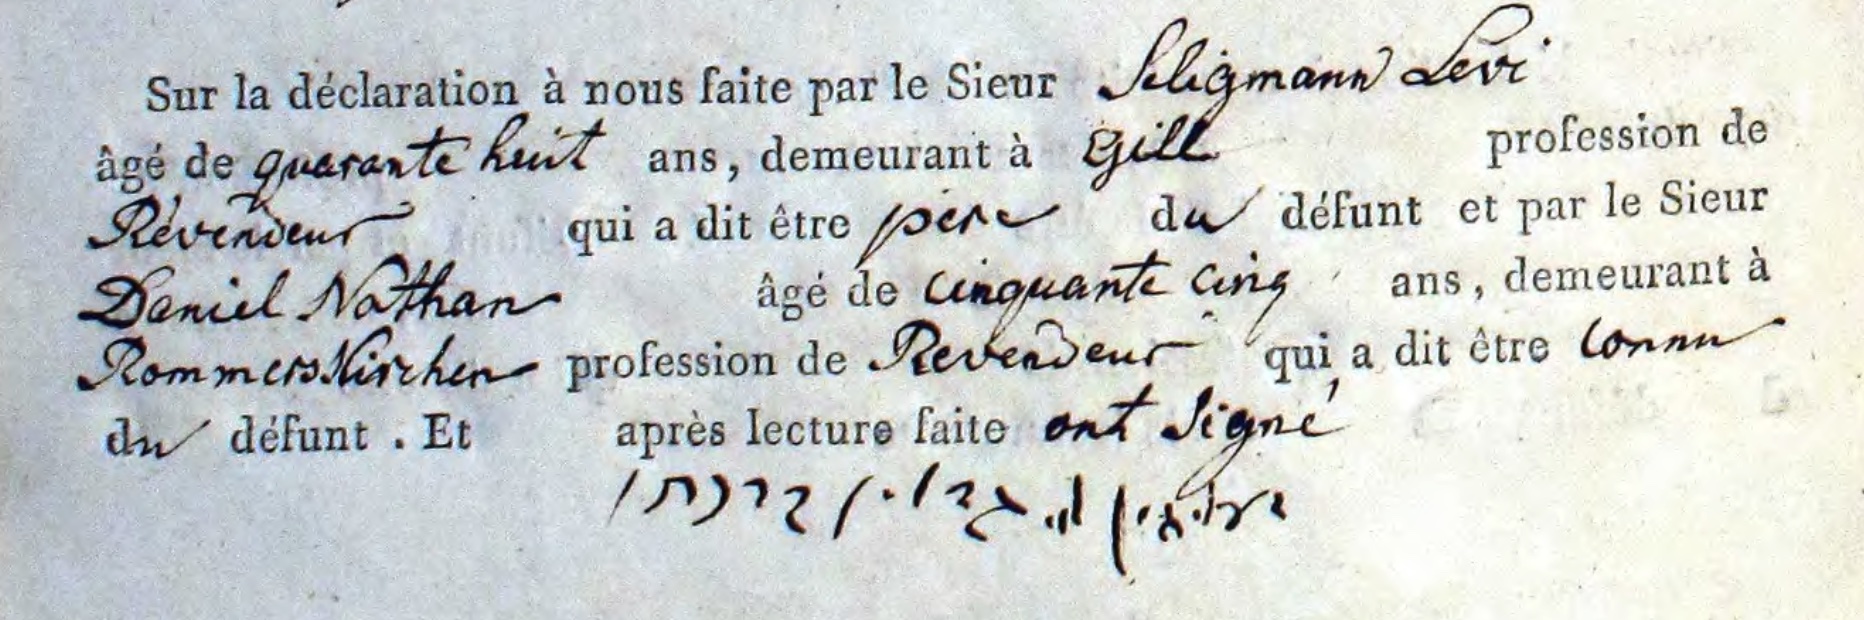 Sur la déclaration à nous faite par le Sieur Seligmann Levi
âgé de quarante huit ans, demeurant à Gill profession de
Révendeur qui a dit être père du défunt et par le Sieur
Daniel Nathan âgé de cinquante cinq ans, demeurant à
Rommerskirchen profession de Revendeur qui a dit être connu
du défunt. Et après lecture faite ont signé
לוי בר נתן